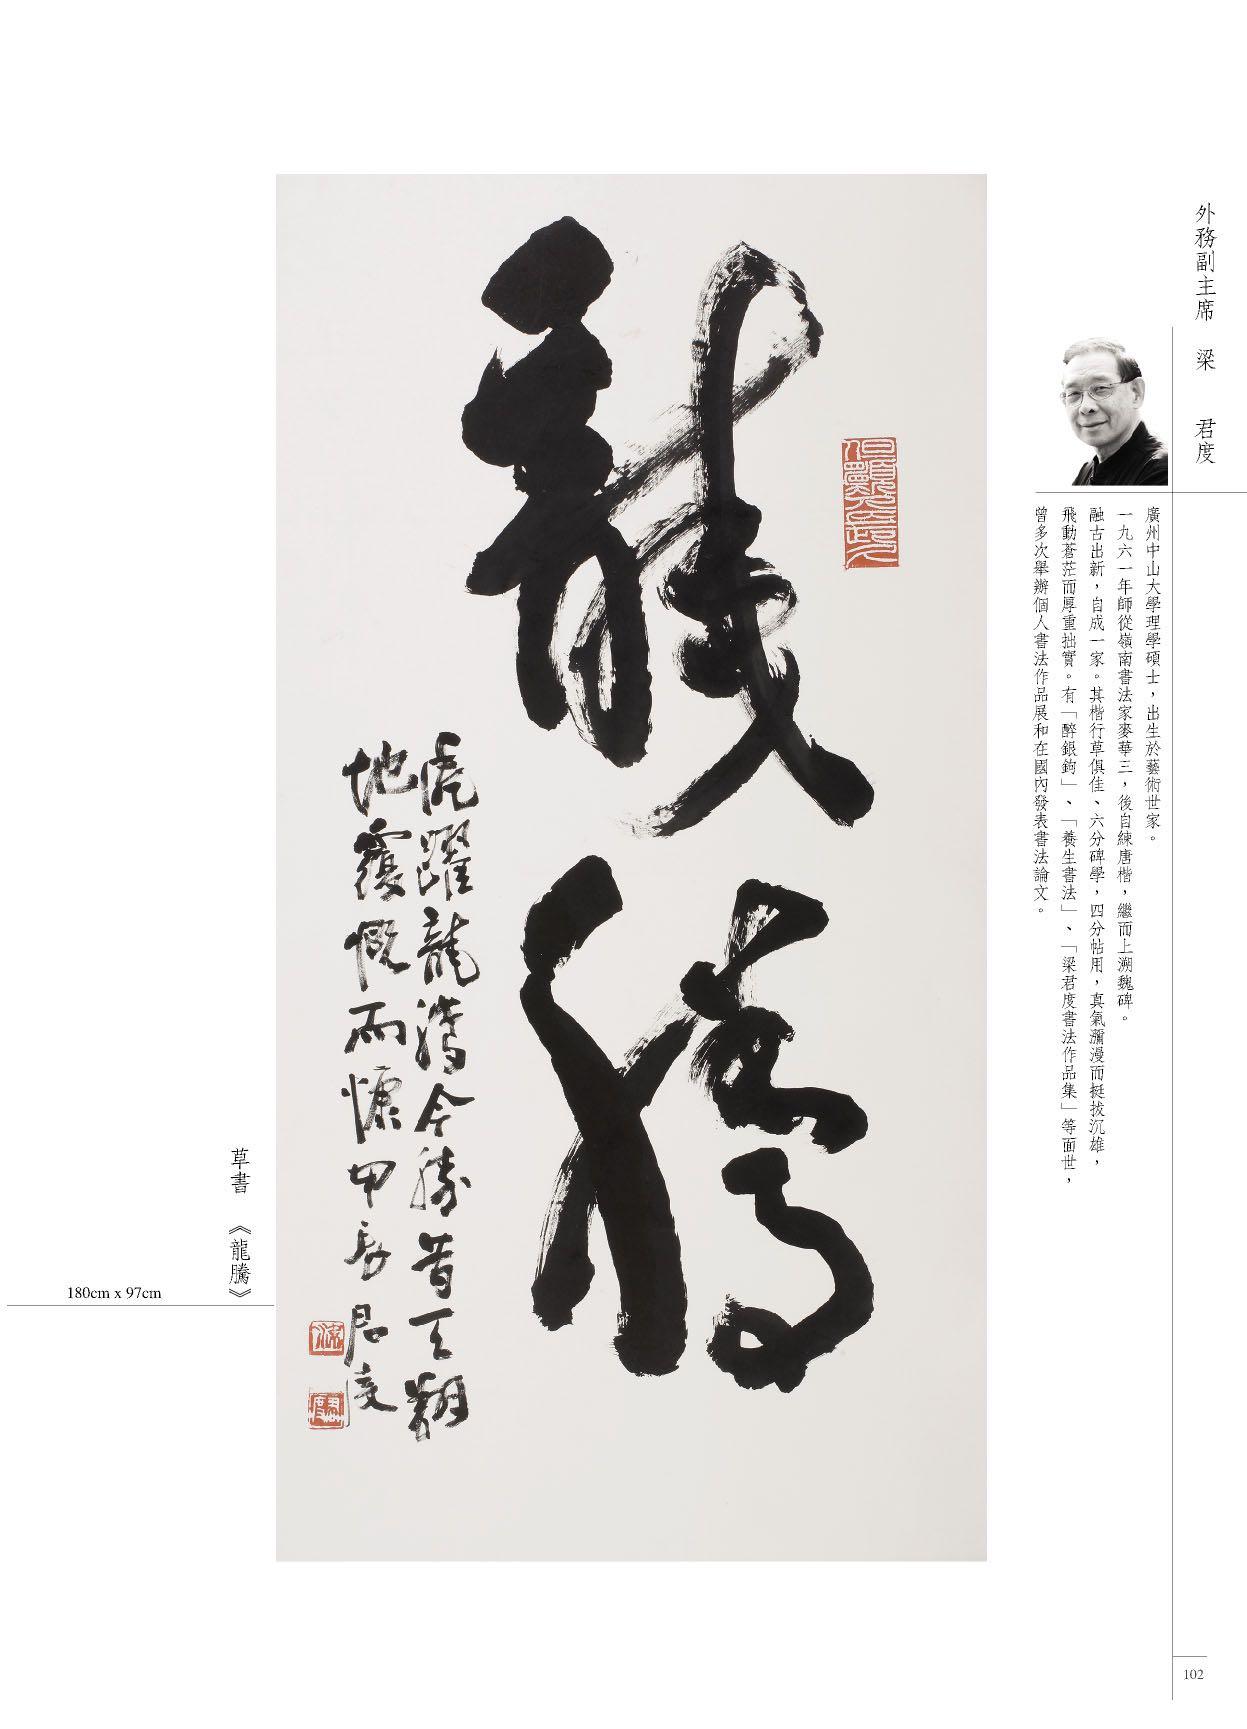 外務副主席 梁 君度
廣州中山大學理學碩士，出生於藝術世家。
一九六一年師從嶺南書法家麥華三，後自練唐楷，繼而上溯魏碑。
融古出新，自成一家。其楷行草俱佳、六分碑學，四分帖用，真氣瀰漫而挺拔沉雄，
飛動蒼茫而厚重拙實。有「醉銀鉤」、「養生書法」、「梁君度書法作品集」等面世，
曾多次舉辦個人書法作品展和在國內發表書法論文。
龍騰
虎躍龍騰今勝昔天翻
地覆慨而慷甲午君度
梁
君度
草書 《龍騰》
180cm x 97cm
102